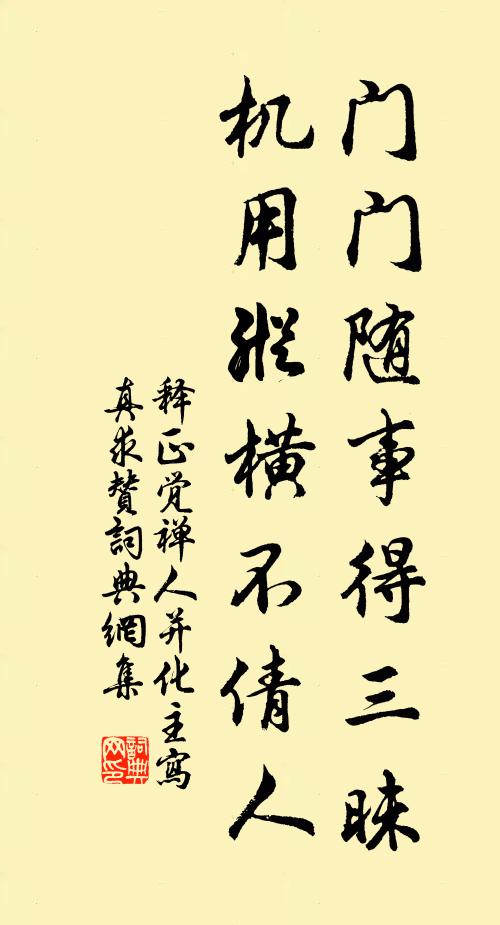 门门随事得三昧
机用纵横不倩人
释正觉禅人并化主寫
真求赞詞典網集
詞典
网印